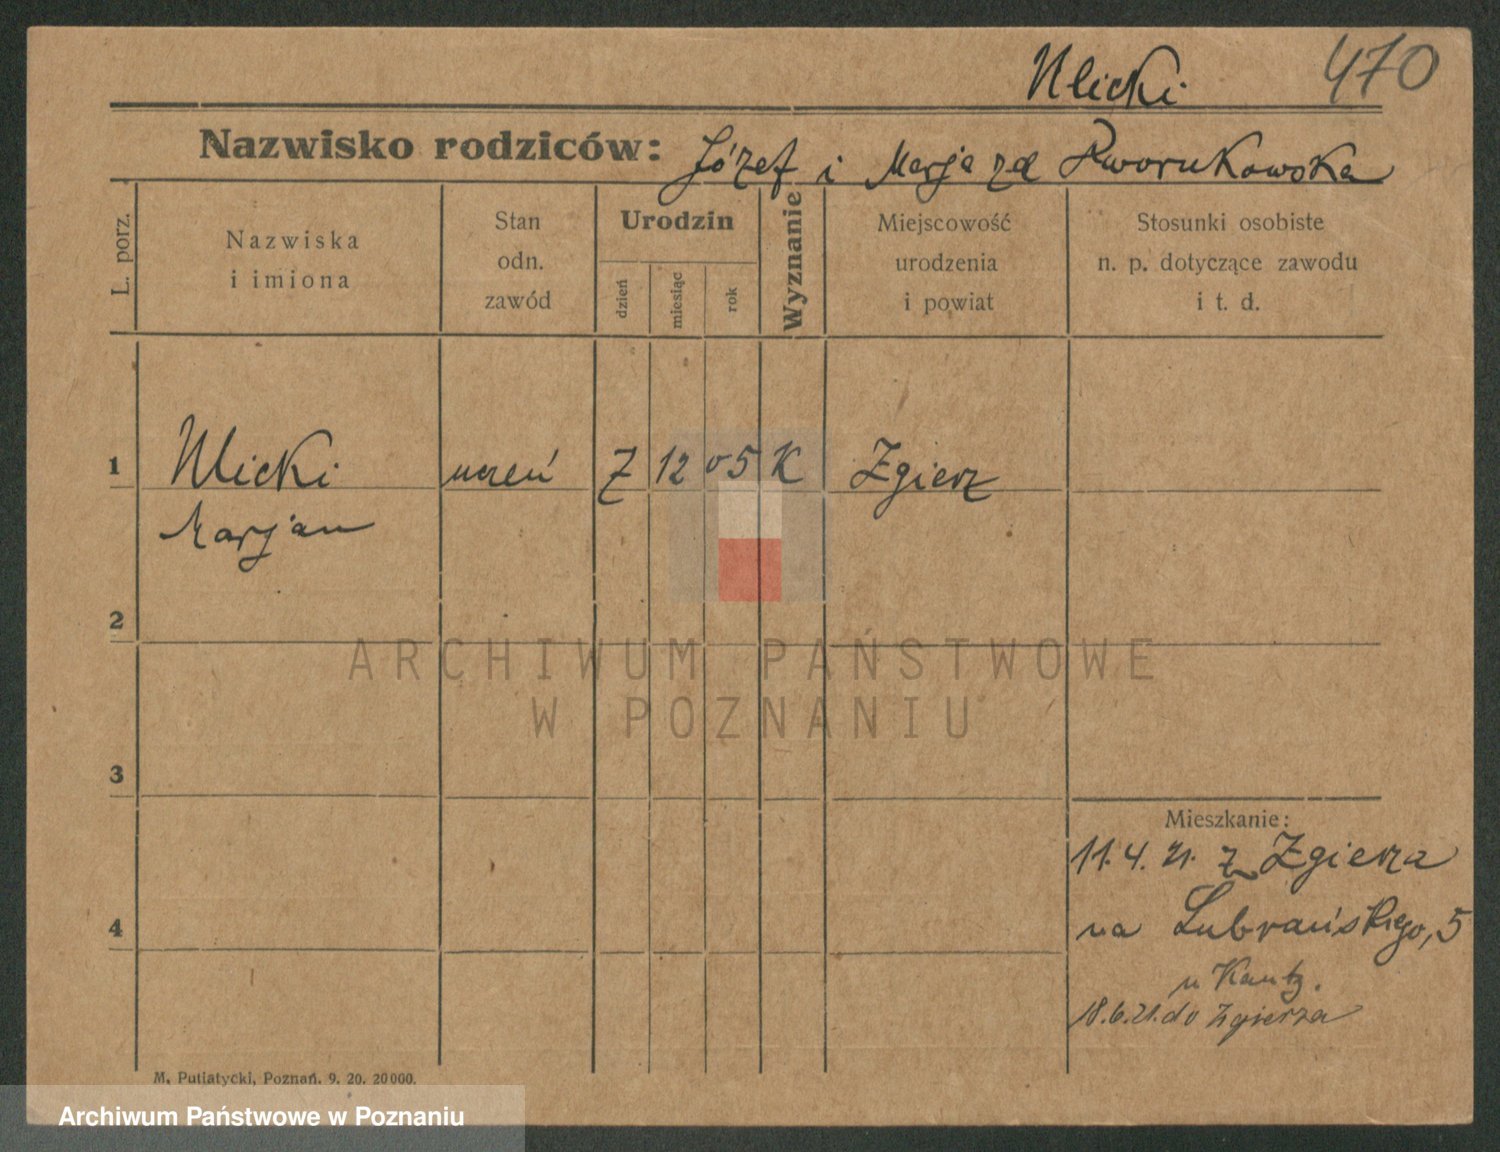 Ulicki 470
Nazwisko rodziców: Józef i Marja zd
L. porz.
Nazwiska
i imiona
Stan
odn.
zawód
Urodzin
dzień
miesiąc
rok
Wyznanie
Miejscowość
urodzenia
i powiat
Stosunki osobiste
n. p. dotyczące zawodu
i t. d.
1 Ulicki uczeń 7 12 05 K Zgierz
Marjan
2
3
4
Mieszkanie:
11.4.21. z Zgierza
na Lubrańskiego, 5
u
18.6.21. do Zgierza
M. Putiatycki, Poznań. 9. 20. 20000.
ARCHIWUM PAŃSTWOWE
W POZNANIU
Archiwum Państwowe w Poznaniu